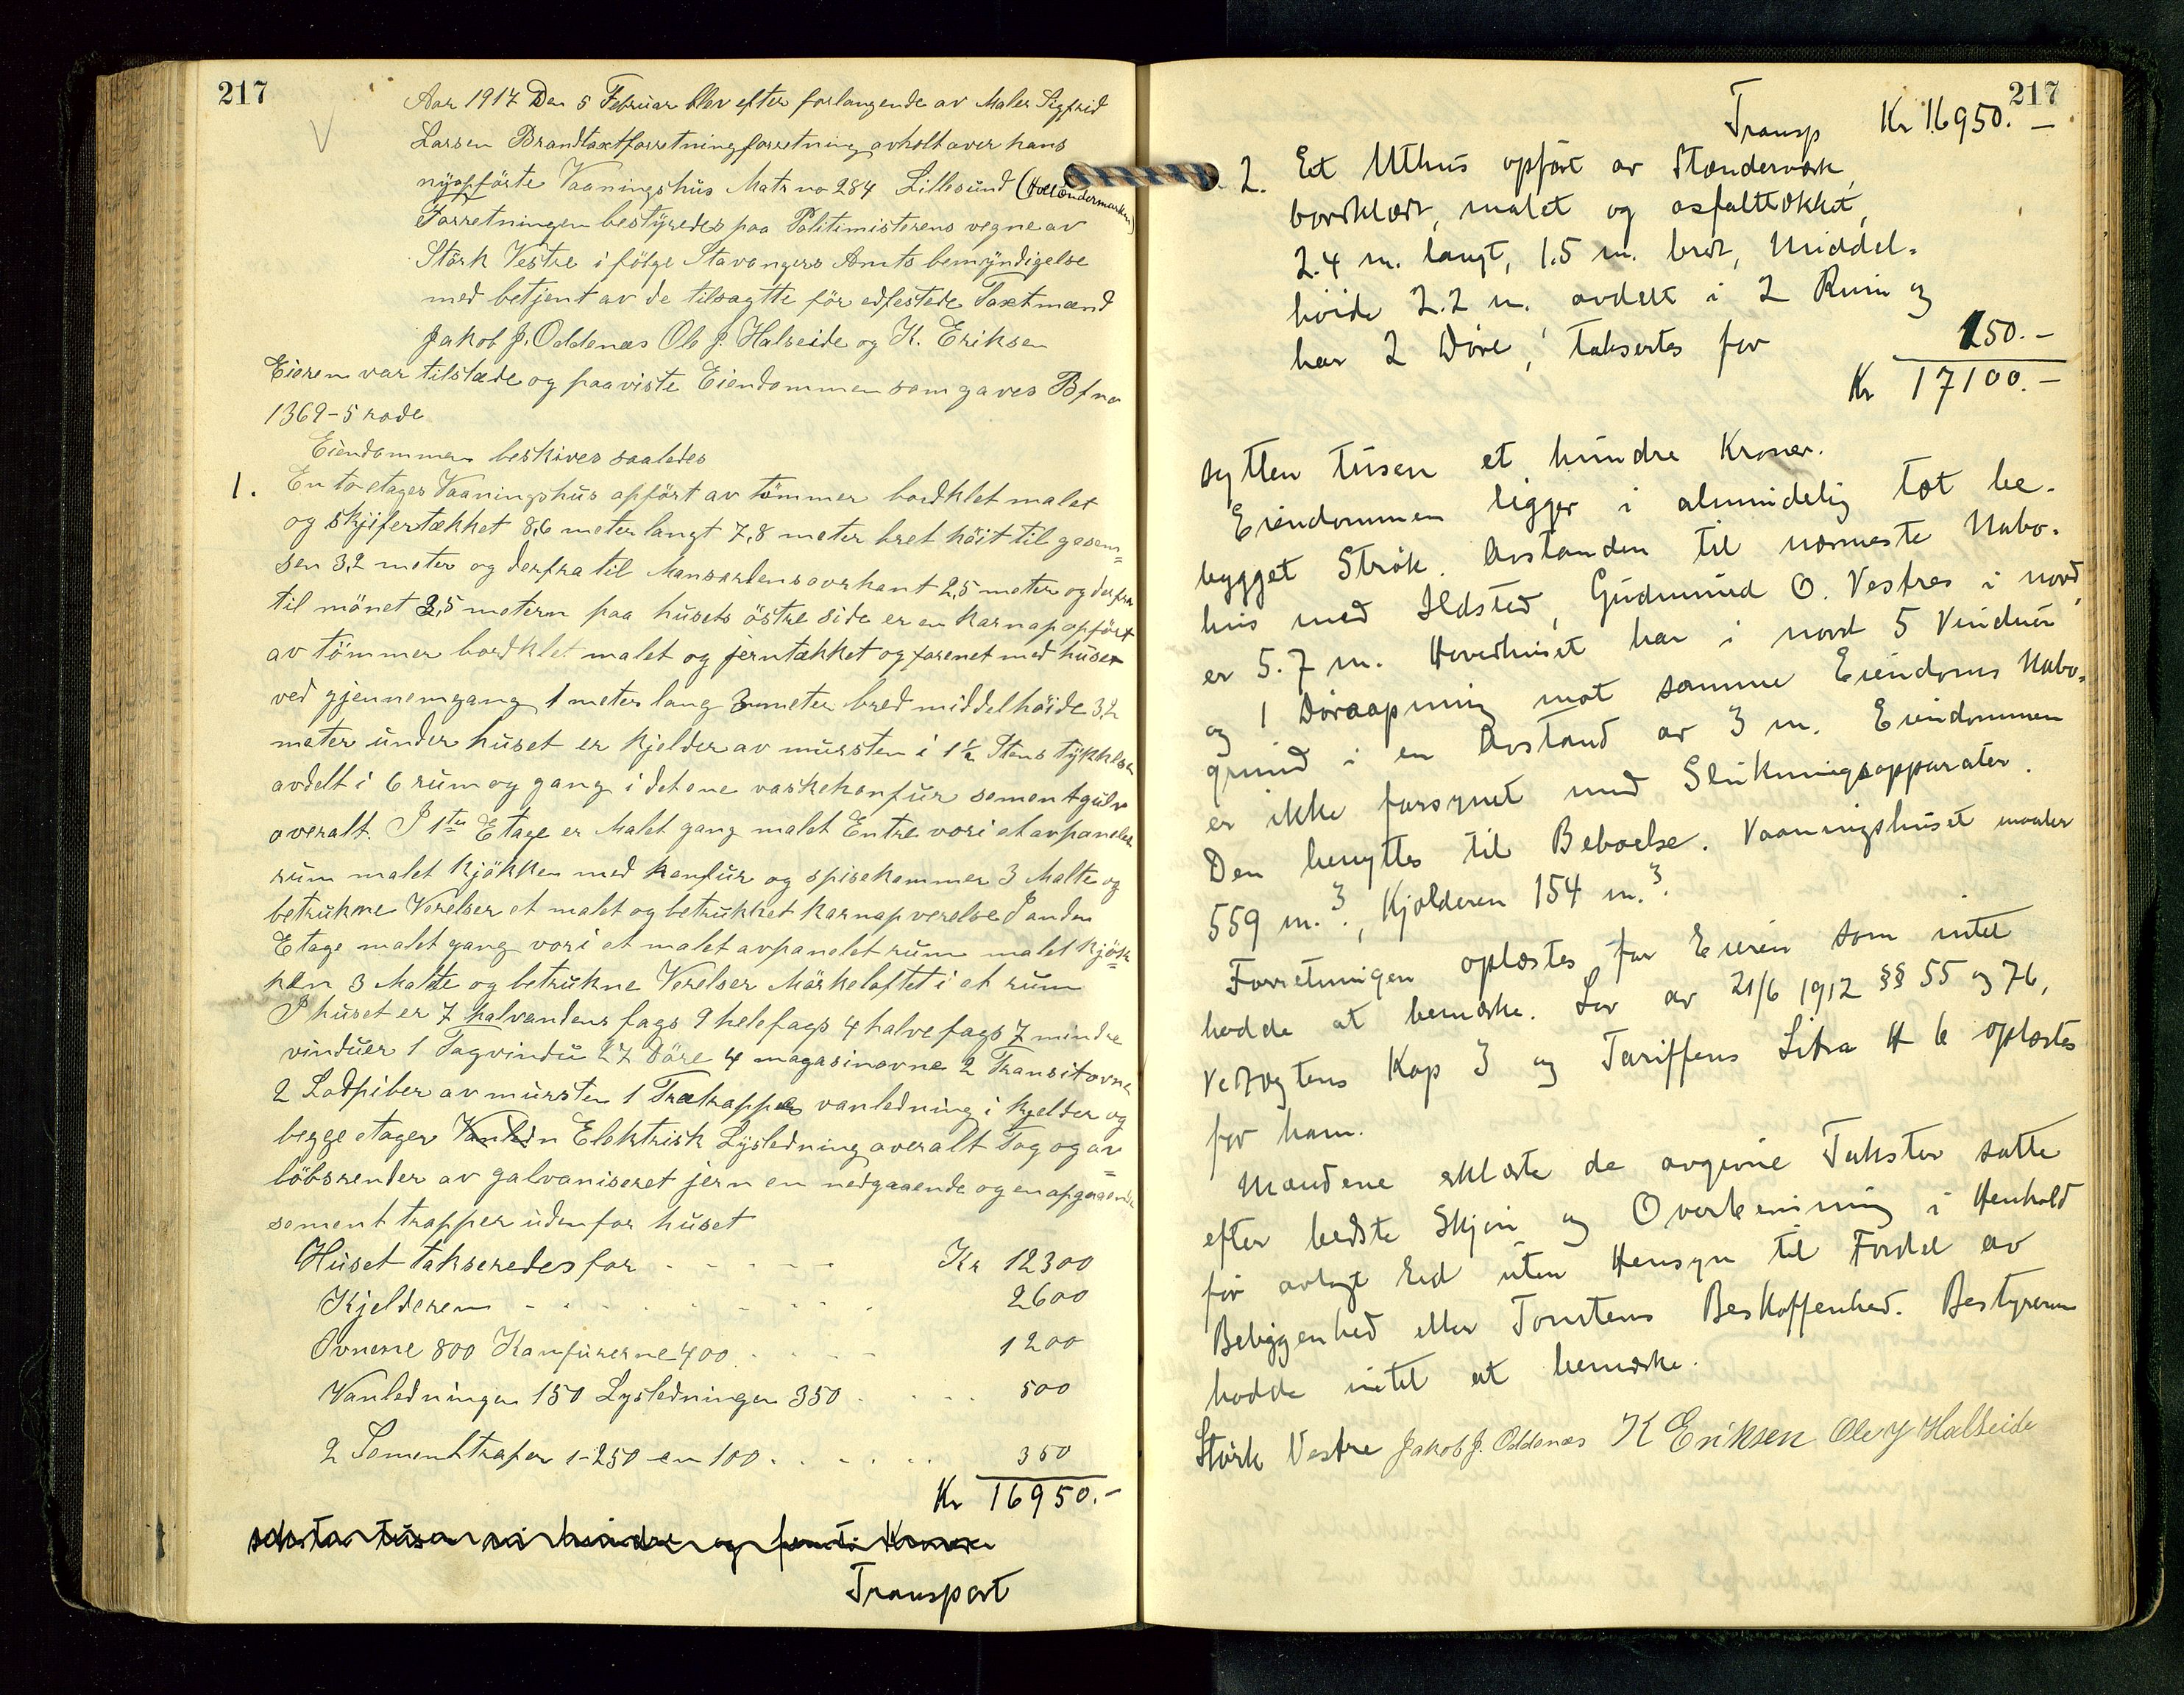 217
Aar 1917 Den 5 Februar blev efter forlangende av Maler Sigfrid
Larsen Brandtaxtforretningforretning avholt over hans
nyopførte Vaaningshus Matr no 284 Lillesund (Hollendermarken)
Forretningen bestyredes paa Politimisterens vegne av
Störk Vestre i følge Stavangers Amts bemyndigelse
med betjent av de tilsagtte før edfestede Taxtmænd
Jakob J. Oddenæs Ole J. Halseide og K. Eriksen
Eieren var tilstæde og paaviste Eiendommen som gaves Bf no
1369-5 rode
Eiendommen beskives saaledes
1. En to etages Vaaningshus opført av tömmer bordklet malet
og skjifertækket 8,6 meter langt 7,8 meter bret höit til gesem=
sen 3,2 meter og derfra til Mansardens overkant 2,5 meter og derfra
til mönet 2,5 metern paa husets östre side er en karnap opfört
av tömmer bordklet malet og jerntækket og forenet med huset
ved gjennemgang 1 meter lang 3 meter bred middelhöide 3,2
meter under huset er kjelder av mursten i 1 1/2 Stens tykkelse
avdelt i 6 rum og gang i det ene vaskekonfur sementgulv
overalt. I 1ste Etage er Malet gang malet Entre vori et avpanelet
rum malet kjökken med konfur og spisekammer 3 Malte og
betrukne Verelser et malet og betrukket karnapverelse I anden
Etage malet gang vori et malet avpanelet rum malet kjök=
ken 3 Malte og betrukne Verelser Mörkeloftet i et rum
I huset er 7 halvandens fags 9 hele fags 4 halve fags 7 mindre
vinduer 1 Tagvindu 27 Döre 4 magasinovne 2 Transitovne
2 Lodpiber av mursten 1 Trætrappe vanledning i kjelder og
begge etager Vanledn Elektrisk Lysledning overalt Tag og av=
löbsrender av galvaniseret jern en nedgaaende og en opgaaende
sement trapper udenfor huset
Huset takseredes for - - - - - Kr 12300
Kjelderen - - - - - - - - 2600
Ovnene 800 Konfurerne 400 - - - - 1200
Vanledningen 150 Lysledningen 350 - - - 500
2 Sementtraper 1-250 en 100 . - - - . 350
Kr 16950.-
seksten tusen ni hundre og femti Kroner
Transport
217
Transp Kr 16950.-
2. Et Uthus opført av Stænderværk,
bordklædt, malet og asfalttækket,
2.4 m. langt, 1.5 m. bredt, Middel-
höide 2.2 m. avdelt i 2 Rum og
har 2 Döre, taksertes for 150.-
Kr 17100.-
sytten tusen et hundre Kroner.
Eiendommen ligger i almindelig tæt be-
bygget Strøk. Avstanden til nærmeste Nabo-
hus med Ildsted, Gudmund O. Vestres i nord,
er 5.7 m. Hovedhuset har i nord 5 Vinduer
og 1 Döraapning mot samme Eiendoms Nabo-
grund i en Avstand av 3 m. Eiendommen
er ikke forsynet med Slukningsapparater.
Den benyttes til Beboelse. Vaaningshuset maaler
559 m.3, Kjælderen 154 m.3.
Forretningen oplæstes for Eieren som intet
hadde at bemærke. Lov av 21/6 1912 §§ 55 og 76,
Vedtægtens Kap 3 og Tariffens Litra H b oplæstes
for ham.
Mændene erklærte de avgivne Takster satte
efter bedste Skjøn og Overbevisning i Henhold
før avlagt Eed uten Hensyn til Fordel av
Beliggenhed eller Tomtens Beskaffenhed. Bestyreren
hadde intet at bemærke.
Störk Vestre Jakob J. Oddenæs K Eriksen Ole J Halseide